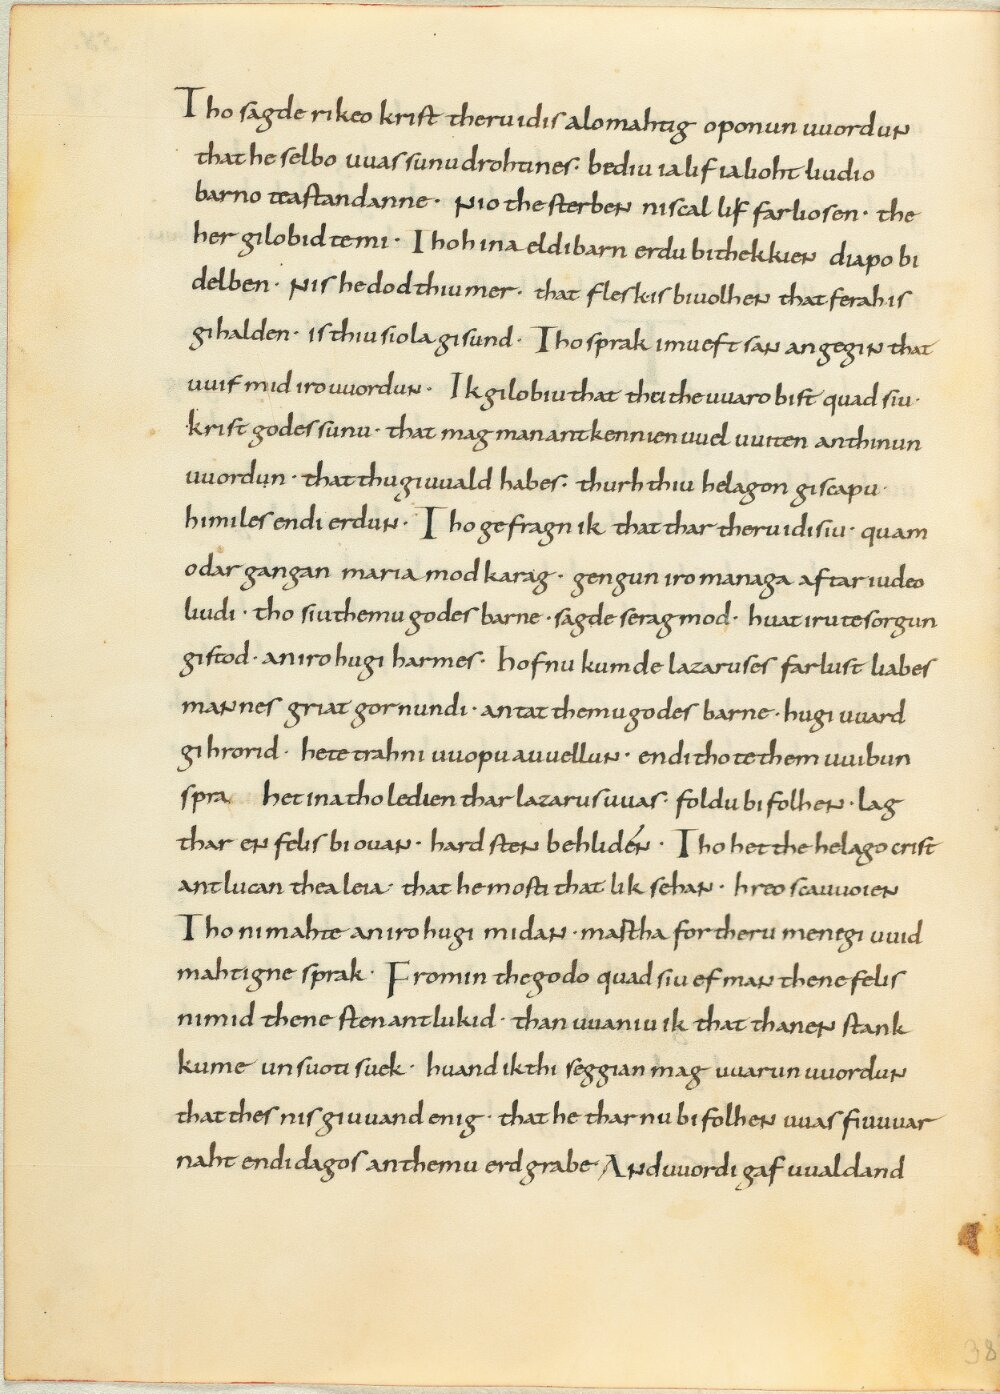 Tho sagde rikeo krist theru idis alomahtig oponun uuordun
that he selbo uuas sunu drohtines · bediu ia lif ia lioht liudio
barno te astandanne · nio the sterben ni scal lif farliosen · the
her gilobid te mi · Thoh ina eldibarn erdu bithekkien diapo bi
delben · nis he dod thiu mer · that flesk is biuolhen that ferah is
gihalden · is thiu siola gisund · Tho sprak imu eft san angegin that
uuif mid iro uuordun · Ik gilobiu that thu the uuaro bist quad siu ·
krist godes sunu · that mag man antkennien uuel uuiten an thinun
uuordun · that thu giuuald habes · thurh thiu helagon giscapu ·
himiles endi erdun · Tho gefragn ik that thar theru idisiu · quam
odar gangan maria modkarag · gengun iro managa aftar iudeo
liudi · tho siu themu godes barne · sagde seragmod · huat iru te sorgun
gistod · an iro hugi harmes · hofnu kumde lazaruses farlust liabes
mannes griat gornundi · antat themu godes barne · hugi uuard
gihrorid · hete trahni uuopu auuellun · endi tho te them uuibun
spra het ina tho ledien thar lazarus uuas · foldu bifolhen · lag
thar en felis biouan · hard sten behlidén · Tho het the helago crist
antlucan thea leia · that he mosti that lik sehan · hreo scauuoien
Tho ni mahte an iro hugi midan · mastha for theru menegi uuid
mahtigne sprak · Fro min the godo quad siu ef man thene felis
nimid thene sten antlukid · than uuaniu ik that thanen stank
kume unsuoti suek · huand ik thi seggian mag uuarun uuordun
that thes nis giuuand enig · that he thar nu bifolhen uuas fiuuuar
naht endi dagos an themu erdgrabe Anduuordi gaf uualdand
38